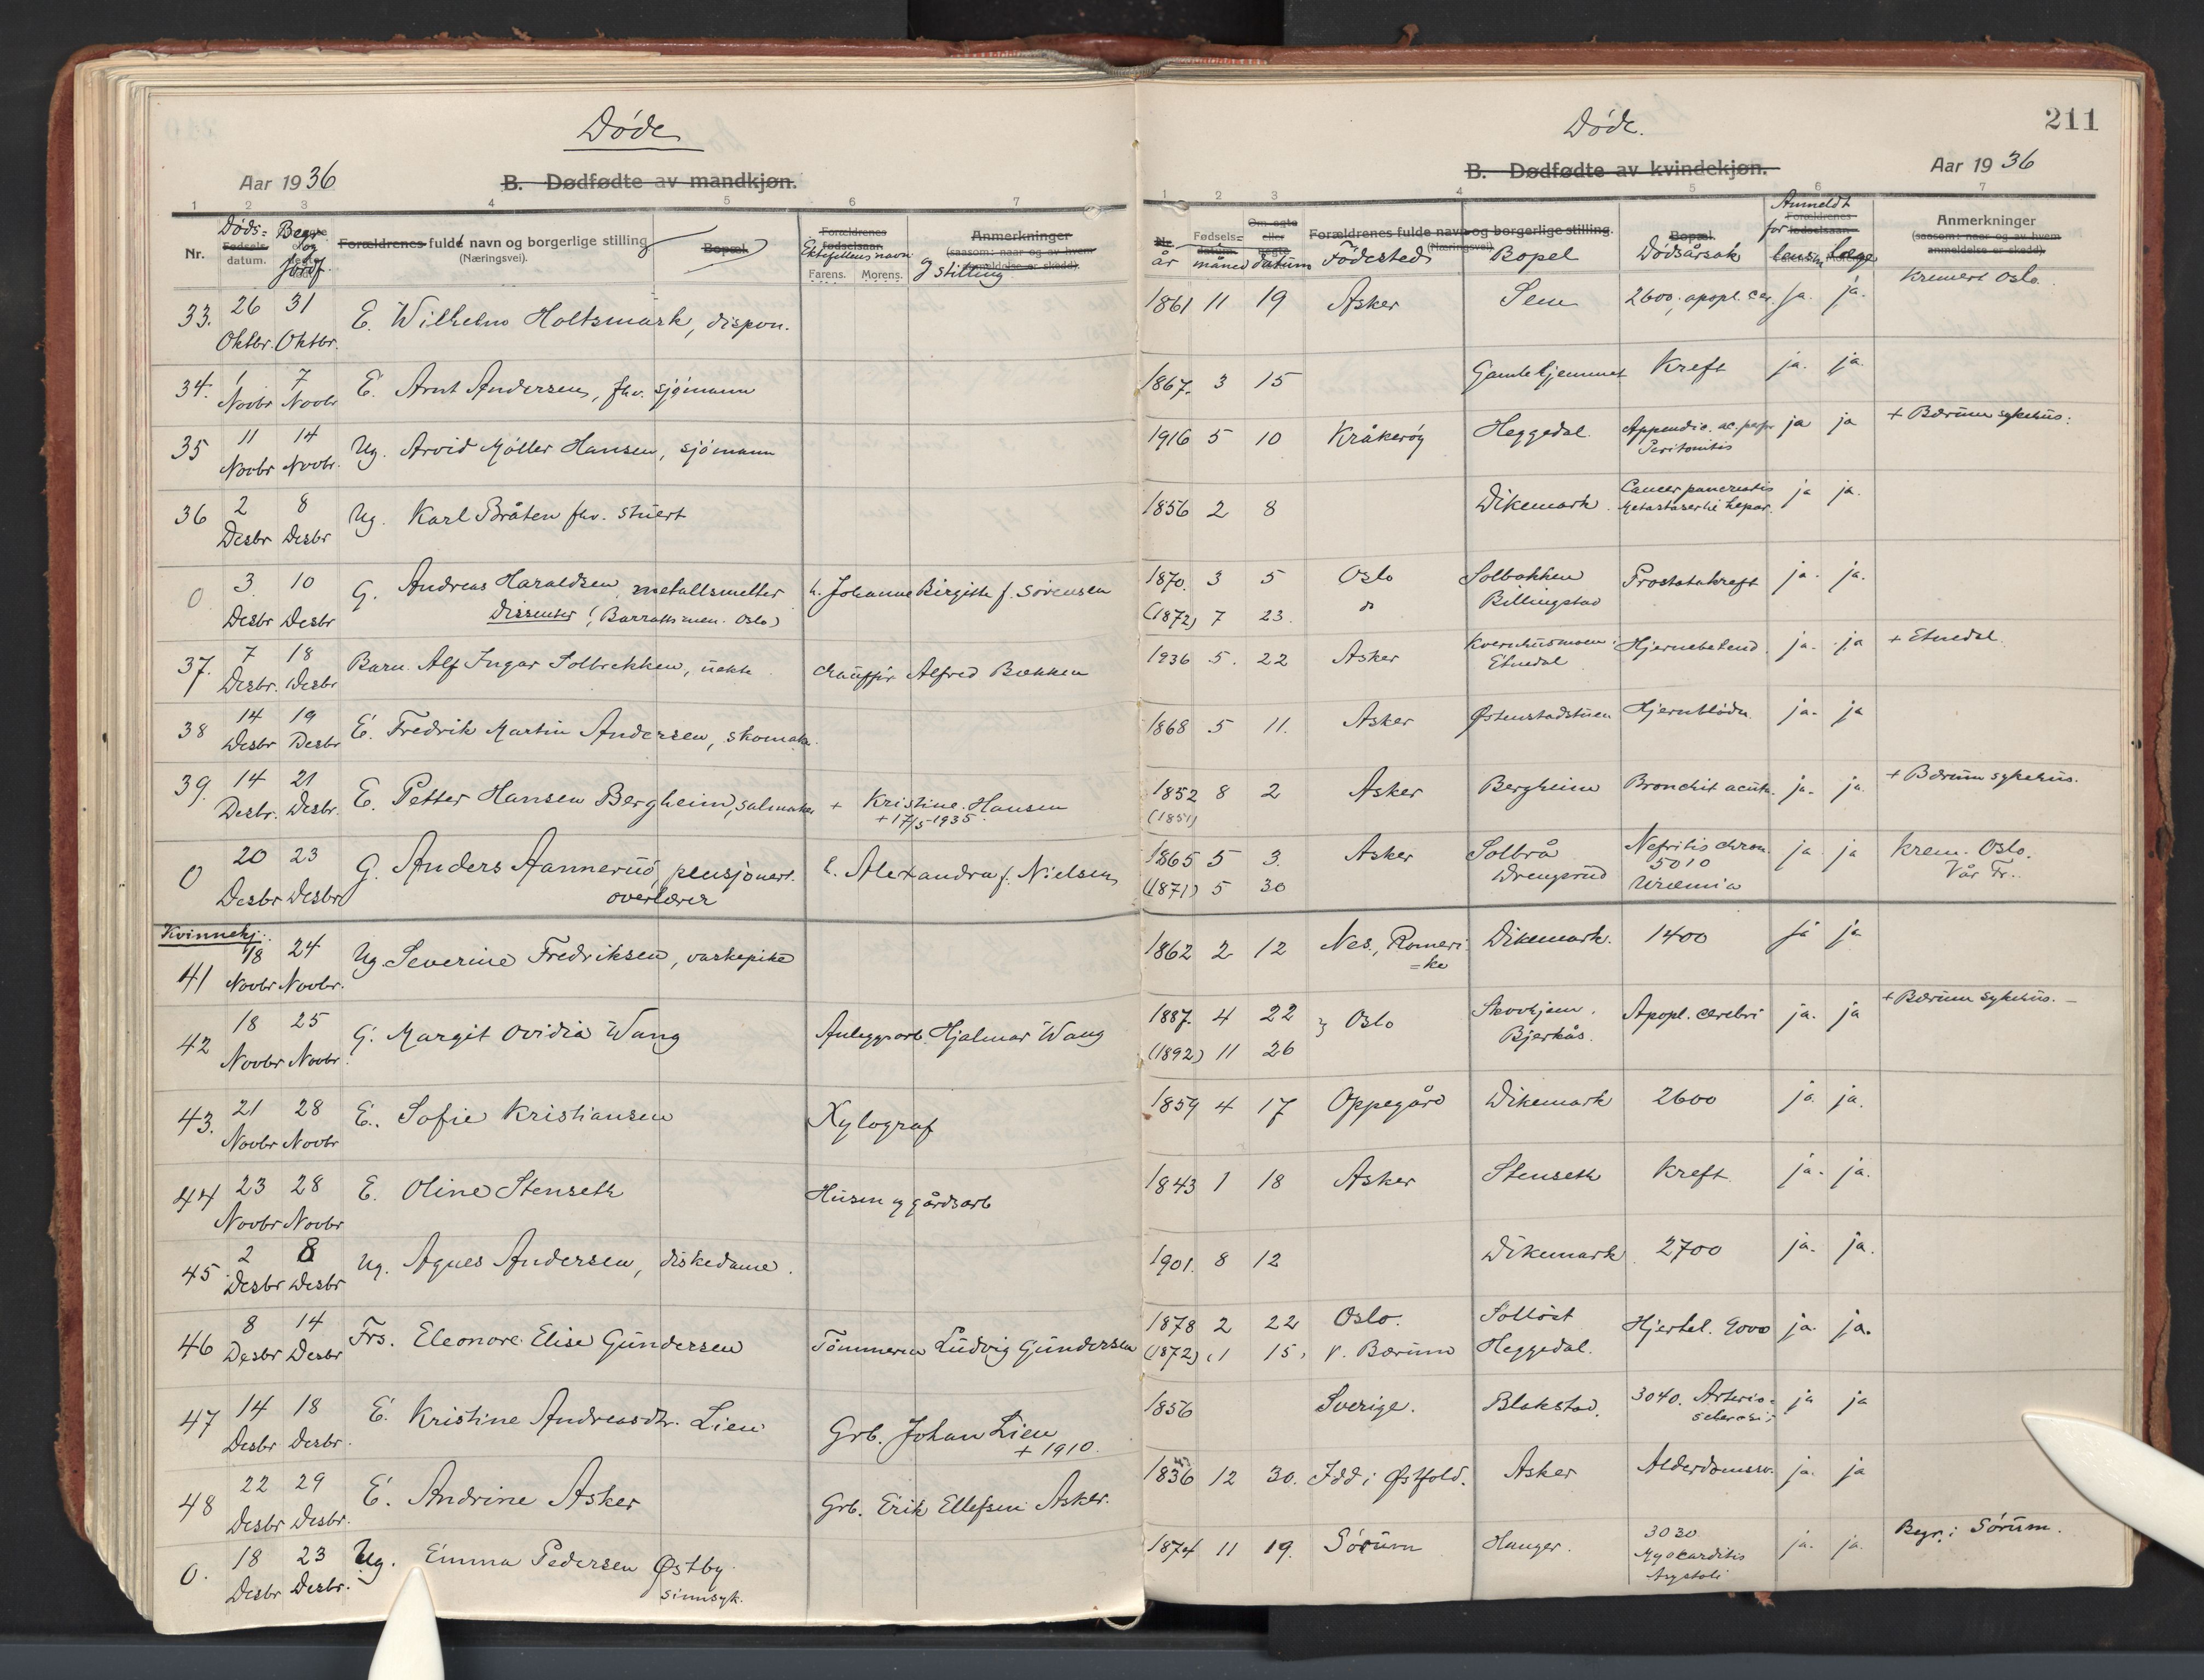 Døde
Aar 1936
B. Dødfødte av mandkjøn.
1 2 3 4 5 6 7
Nr.
Døds=
Fødsels-
datum.
Begr.
og
jordf.
Forældrenes fulde navn og borgerlige stilling
(Næringsvei).
Bopæl.
Forældrenes
fødselsaar
Ektefellens navn
Farens. Morens.
og stilling
Anmerkninger
(saasom: naar og av hvem
anmeldelse er skedd).
33. 26 Oktbr. 31 Oktbr. E. Wilhelm Holtsmark, dispon.
34. 1 Novbr 7 Novbr E. Arnt Andersen, fhv. sjømann
35 11 Novbr 14 Novbr. Ug. Arvid Møller Hansen, sjømann
36 2 Desbr 8 Desbr Ug. Karl Bråten fhv. stuert
0 3. Desbr 10 Desbr G. Andreas Haraldsen, metallsmelter h. Johanne Birgitte f. Sørensen
Dissenter (Barratts men. Oslo)
37. 7 Desbr. 18 Desbr Barn. Alf Ingar Solbrekken, uekte chauffør Alfred Bekken
38 14 Desbr 19 Desbr E. Fredrik Martin Andersen, skomak.
39. 14 Desbr. 21 Desbr. E. Petter Hansen Bergheim, salmaker + Kristine Hansen
+ 17/5-1935.
0 20 Desbr 23 Desbr G. Anders Aannerud, pensjonert. h. Alexandra f. Nielsen
overlærer
Kvinnekj.
41 18 Novbr 24 Novbr. Ug. Severine Fredriksen, vaskepike
42 18 Novbr 25 Novbr. G. Margit Ovidia Wang Anleggsarb. Hjalmar Wang
43. 21 Novbr 28 Novbr E. Sofie Kristiansen Xylograf
44 23 Novbr 28 Novbr E. Oline Stenseth Husm og gårdsarb
45 2 Desbr 8 Desbr Ug. Agnes Andersen, diskedame.
46 8 Desbr 14 Desbr Frs. Eleonore Elise Gundersen Tømmerm Ludvig Gundersen
47 14 Desbr 18 Desbr. E. Kristine Andreasdtr. Lien Grb. Johan Lien
+ 1910.
48 22 Desbr 29 Desbr. E. Andrine Asker Grb. Erik Ellefsen Asker.
0. 18 Desbr 23 Desbr. Ug. Emma Pedersen Østby.
sinnsyk.
Døde.
211
B. Dødfødte av kvindekjøn.
Aar 1936
1 2 3 4 5 6 7
Nr.
år
Fødsels=
datum.
måned
Om egte
eller
uegte
datum
Forældrenes fulde navn og borgerlige stilling.
(Næringsvei).
Födested
Bopel
Bopæl.
Dødsårsak
Anmeldt
Forældrenes
for fødselsaar
lensm Læge
Anmerkninger
(saasom: naar og av hvem
anmeldelse er skedd).
1861 11 19 Asker Sem 2600, apopl. cer. ja. ja. Kremert Oslo.
1867. 3 15 Gamlehjemmet Kreft ja. ja.
1916 5 10 Kråkerøy Heggedal. Appendic. ac. perf. ja ja + Bærum sykehus.
Peritonitis
1856 2 8 Dikemark. Cancer pancreatis ja ja.
hepar.
1870. 3 5 Oslo Solbakken Prostatakreft ja. ja.
(1872) 7 23. Billingstad
1936 5. 22 Asker Kvernhusmoen. Hjernebetend. ja. ja + Etnedal.
Etnedal
1868 5 11. Asker Østenstadstuen Hjernblødn. ja. ja
1852 8 2 Asker Bergheim Bronchit acuta. ja. ja. + Bærum sykehus.
(1851)
1865 5 3. Asker Solbrå Nefritis chron. ja ja Krem. Oslo.
5010 Vår Fr.
(1871) 5 30 Drengsrud Uræmia
1862 2 12 Nes, Romeri Dikemark. 1400 ja ja
=ke
1887. 4 22 } Oslo Skovhjem. Apopl. cerebri ja. ja + Bærum sykehus. –
(1892) 11 26 Bjerkås.
1859 4 17 Oppegård Dikemark 2600 ja. ja.
1843 1 18 Asker Stenseth Kreft ja. ja.
1901. 8 12 Dikemark 2700 ja. ja.
1878 2 22 Oslo. Solløst Hjertel. 9000 ja. ja.
(1872) 1 15. V. Bærum Heggedal.
1856 Sverige. Blakstad. 3040. Arterio= ja ja
sclerosis
1836 12 30. Idd i Østfold. Asker Alderdomssv. ja. ja
1874 11 19. Sørum Hauger. 3030 ja. ja. Begr. i Sørum.
Myocarditis